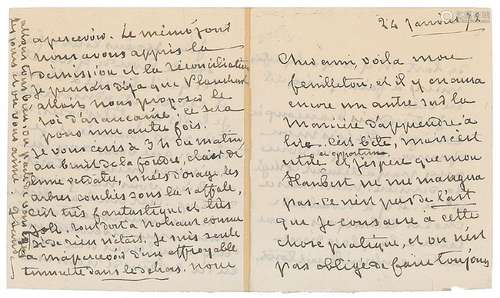 24 janvier 72
Cher ami, voilà mon
feuilleton, et il y en aura
encore un autre sur la
manière d'apprendre à
lire. C'est bête, mais c'est
utile et opportun, j'espère que mon
Flaubert ne me mangera
pas. Ce n'est pas de l'art
que je consacre à cette
chose pratique, et on n'est
pas obligé de faire toujours
apercevoir. Le même jour
nous avons appris la
démission et la réconciliation
je pensais déjà que Planchut
allait nous proposer le
roi d'araucanie. ce sera
pour une autre fois.
Je vous écris à 3 h du matin,
au bruit de la foudre, clair de
lune verdâtre, nuées d'orage, les
arbres couchés sous la raffale,
c'est très fantastique et très
joli. tout dort à Nohant comme
si de rien n'était. Je suis seule
à m'apercevoir d'un effroyable
tumulte dans le dehors. nous
allons tous bien